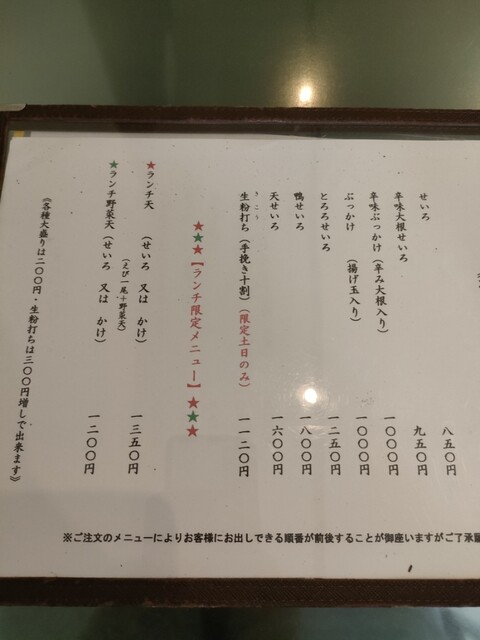 せいろ 八五〇円
辛味大根せいろ 九五〇円
辛味ぶっかけ（辛み大根入り） 一〇〇〇円
ぶっかけ（揚げ玉入り） 一〇〇〇円
とろろせいろ 一二五〇円
鴨せいろ 一八〇〇円
天せいろ 一六〇〇円
きこう
生粉打ち（手挽き十割）（限定土日のみ） 一一二〇円
★★★【ランチ限定メニュー】★★★
★ランチ天 （せいろ 又は かけ） 一三五〇円
（えび一尾＋野菜天）
★ランチ野菜天（せいろ 又は かけ） 一二〇〇円
《各種大盛りは二〇〇円・生粉打ちは三〇〇円増しで出来ます》
※ご注文のメニューによりお客様にお出しできる順番が前後することが御座いますがご了承